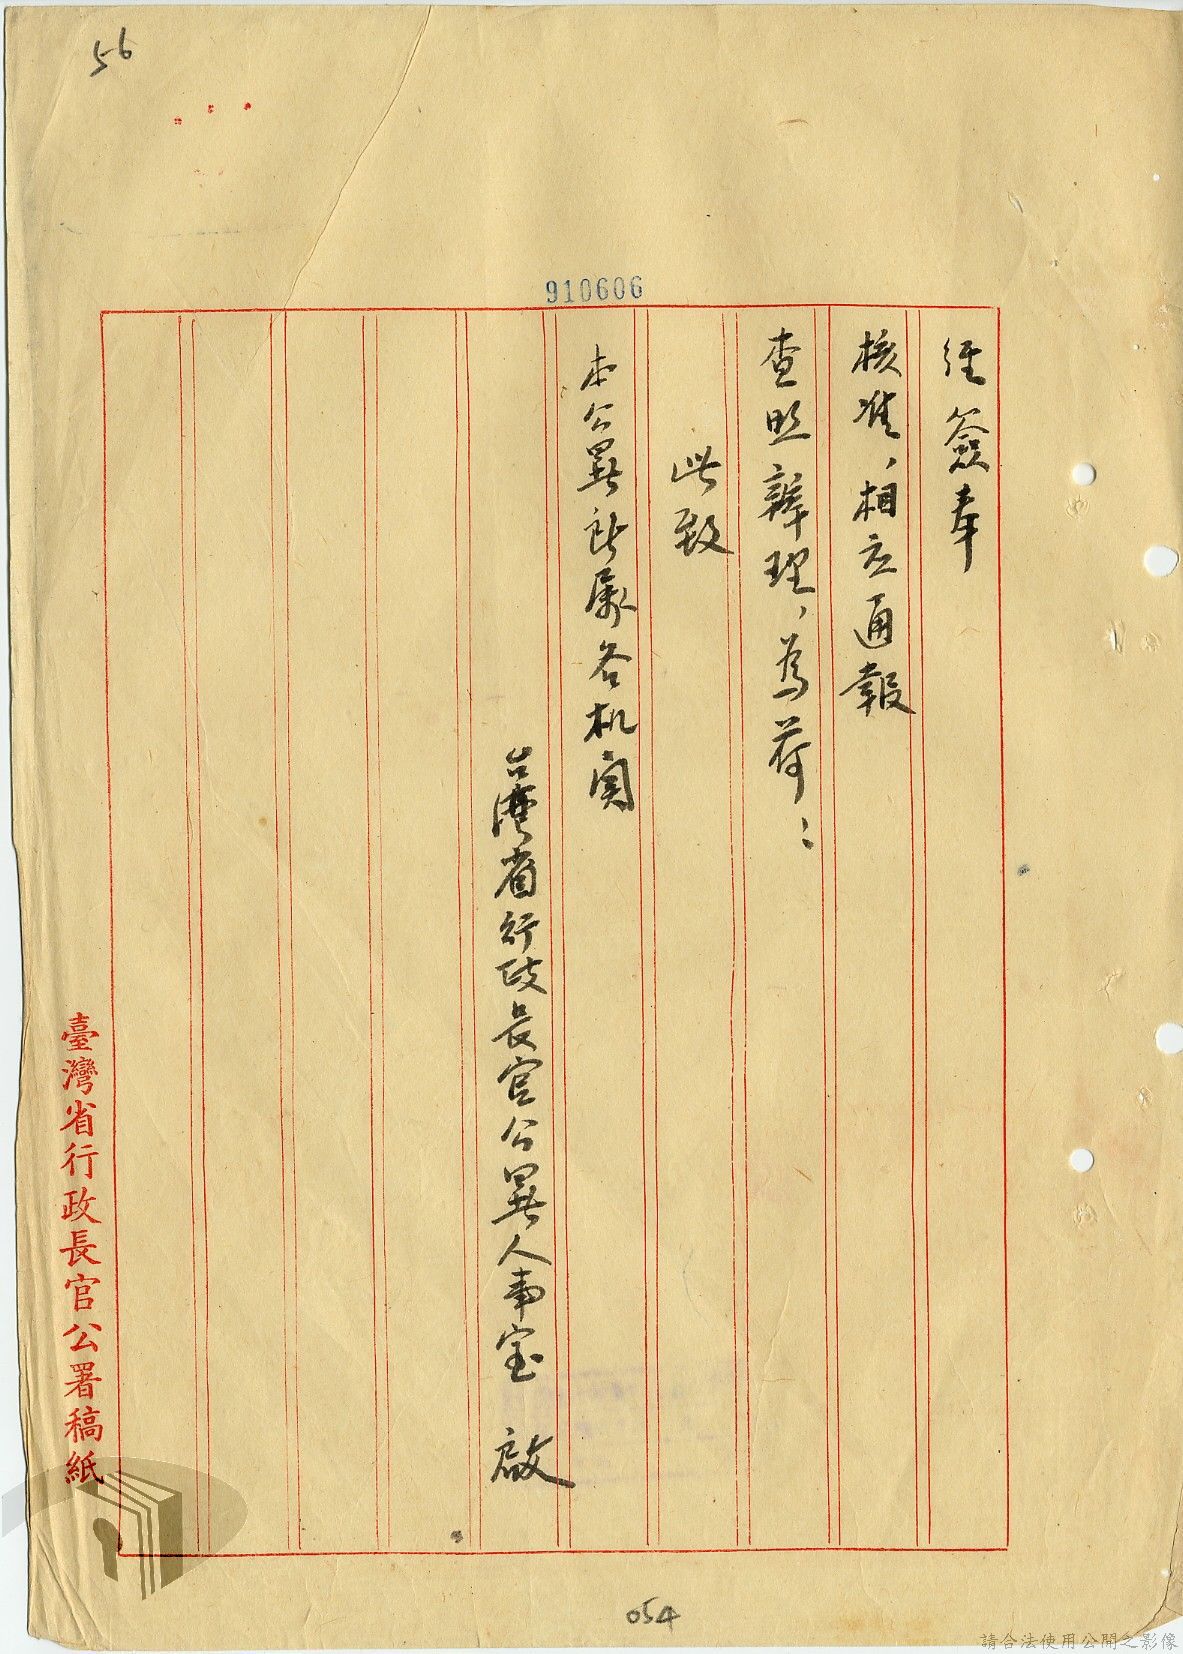 56
910606
經簽奉
核准，相应通報
查照辦理，為荷：
此致
本公署所屬各机関
台灣省行政長官公署人事室　啟
臺灣省行政長官公署稿紙
054
請合法使用公開之影像